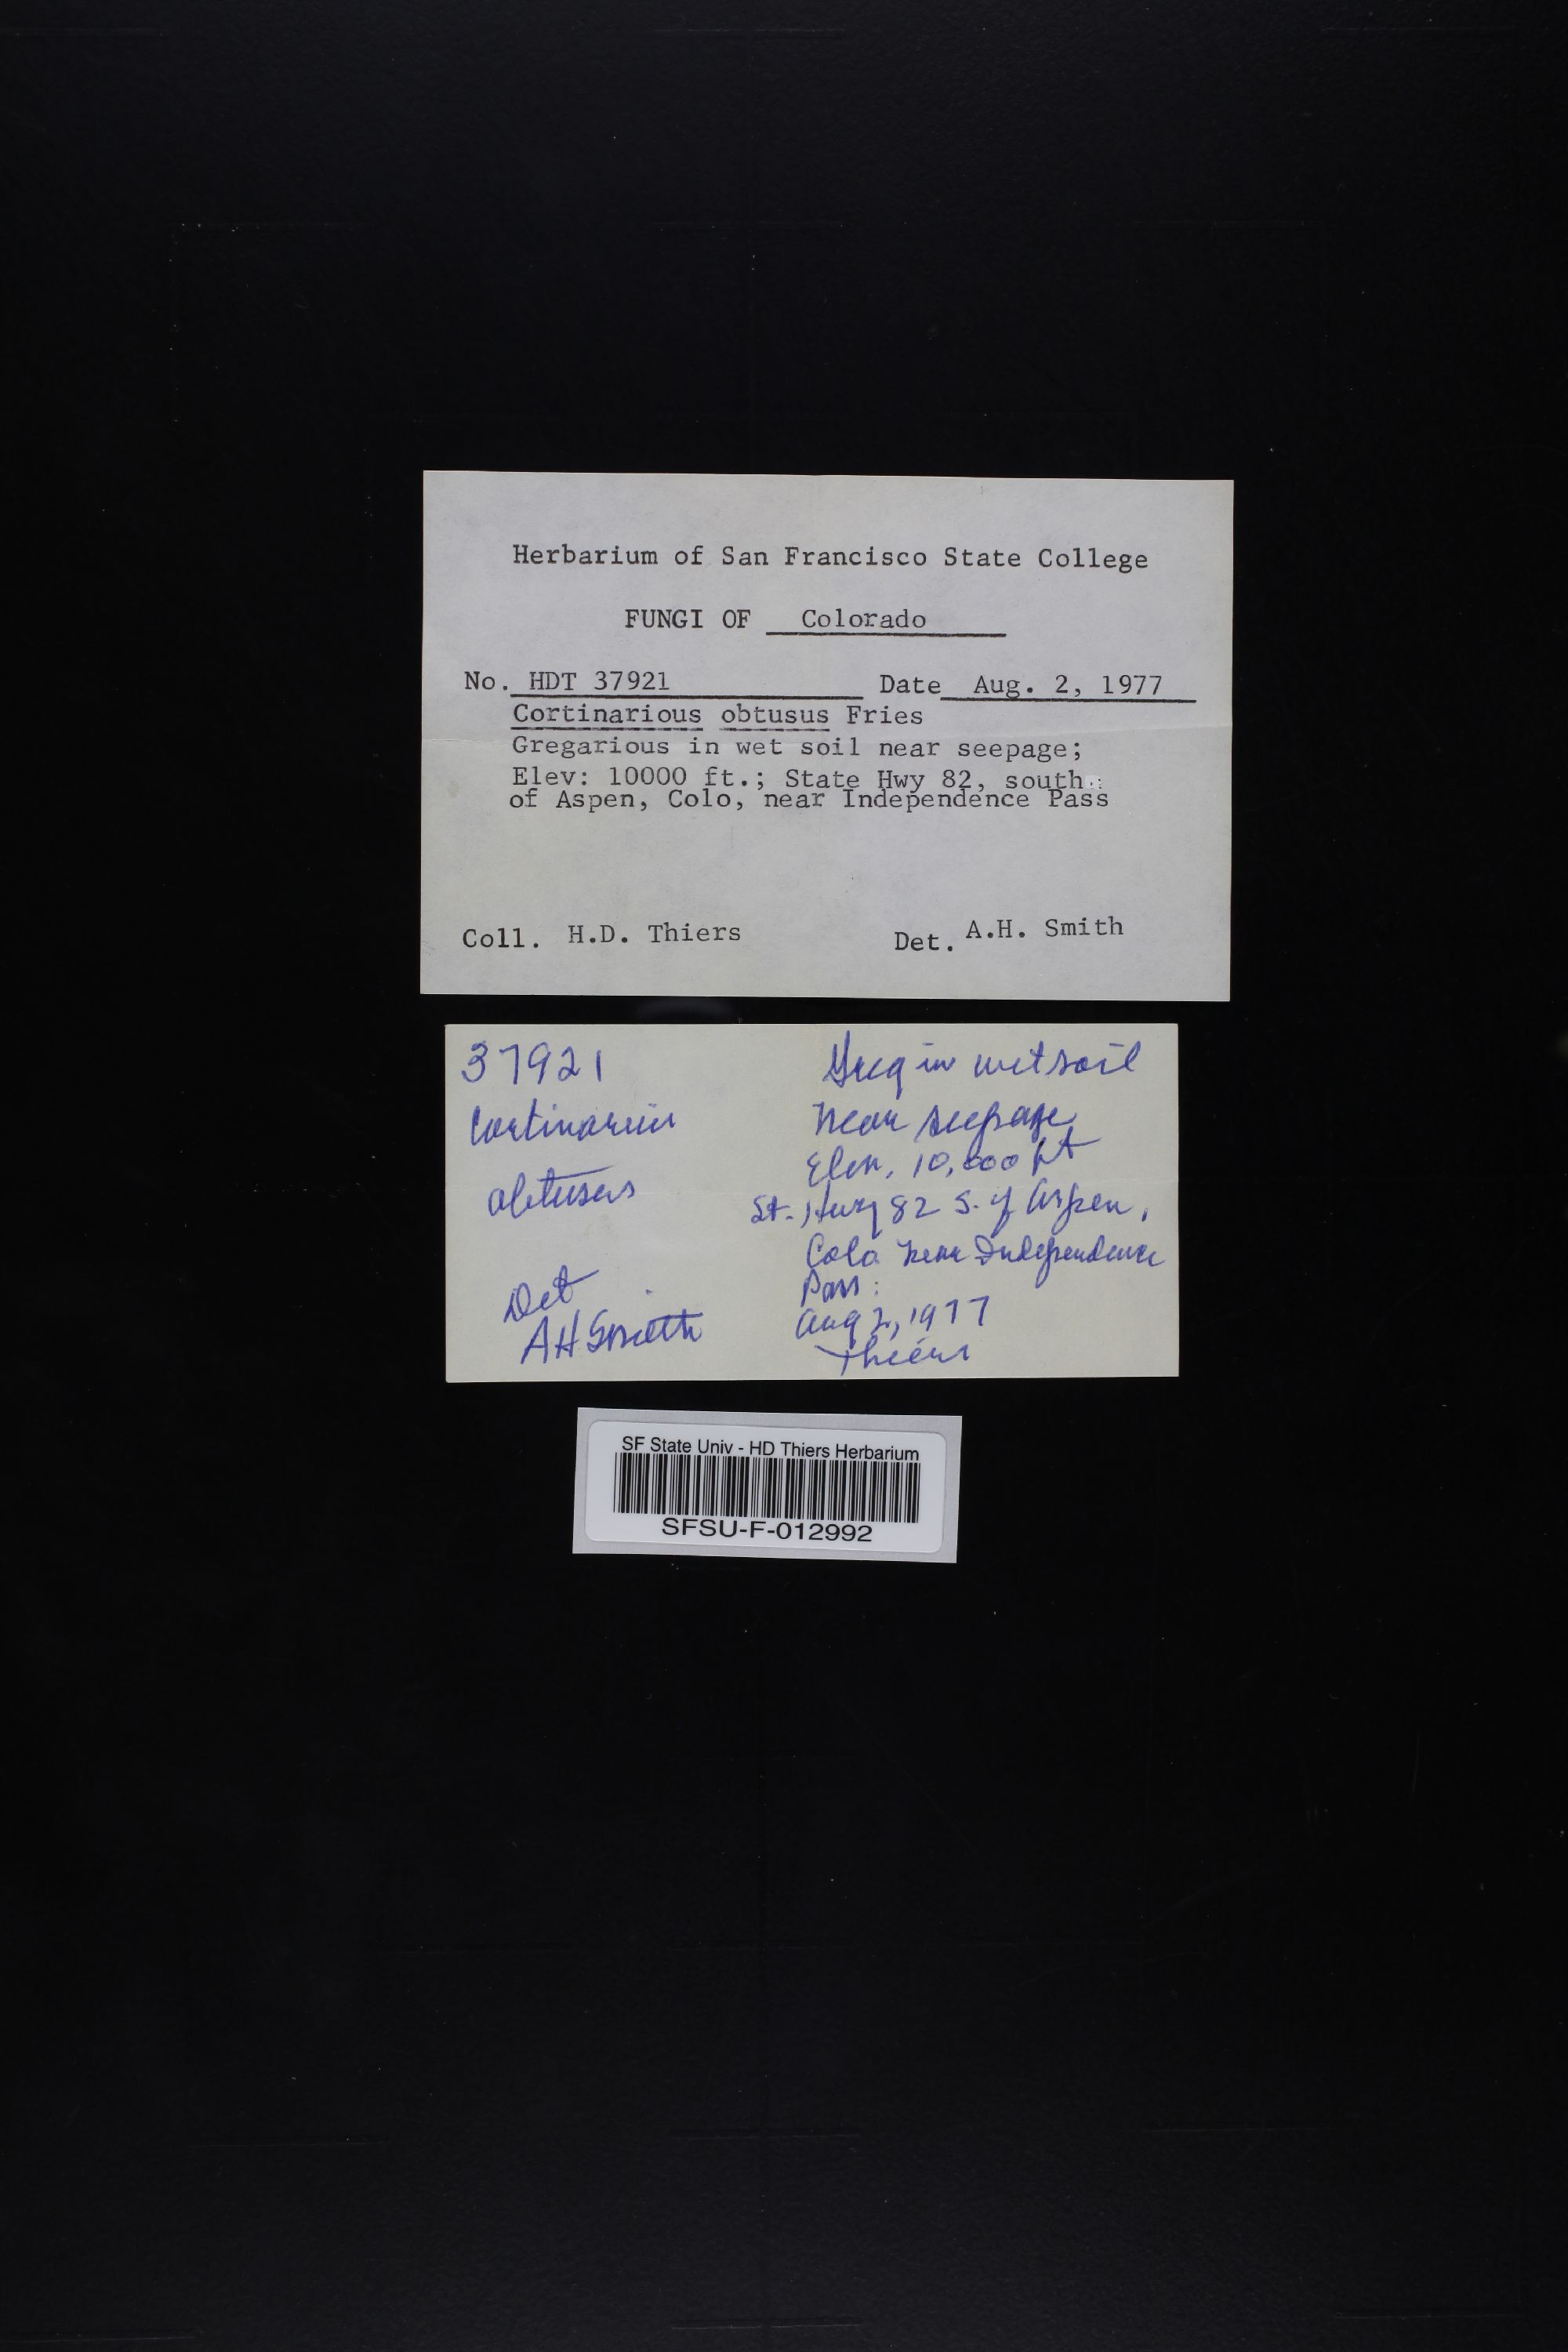 Herbarium of San Francisco State College
FUNGI OF Colorado
No. HDT 37921 Date Aug. 2, 1977
Cortinarious obtusus Fries
Gregarious in wet soil near seepage;
Elev: 10000 ft.; State Hwy 82, south
of Aspen, Colo, near Independence Pass
Coll. H.D. Thiers Det. A.H. Smith
37921
Cortinarius
obtusus
Det
AH Smith
Greg in wet soil
near seepage
Elev, 10,000 ft
St. Hwy 82 S. of Aspen,
Colo near Independence
Pass:
Aug 2, 1977
Thiers
SF State Univ - HD Thiers Herbarium
SFSU-F-012992